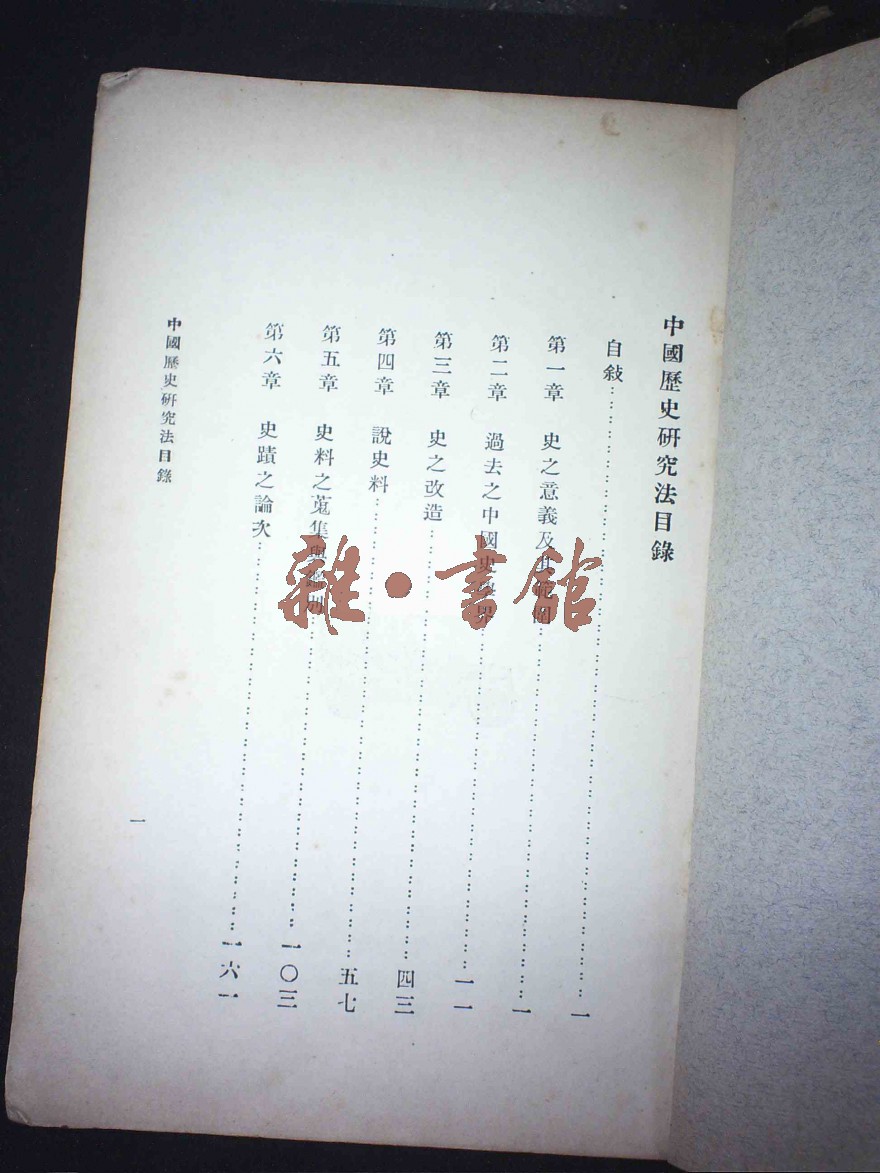 中國歷史研究法目錄
自敍……一
第一章 史之意義及其範圍……一
第二章 過去之中國史學界……一一
第三章 史之改造……四三
第四章 說史料……五七
第五章 史料之蒐集與鑑別……一〇三
第六章 史蹟之論次……一六一
中國歷史研究法目錄
一
雜·書館